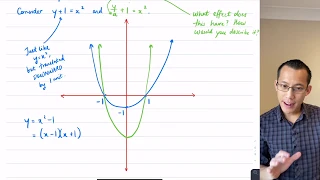 Consider y + 1 = x² and (y/4) + 1 = x²
What effect does
this have? How
would you describe it?
Just like
y = x²,
but translated
DOWNWARD
by 1 unit.
-1
1
-1
y = x² - 1
= (x - 1)(x + 1)